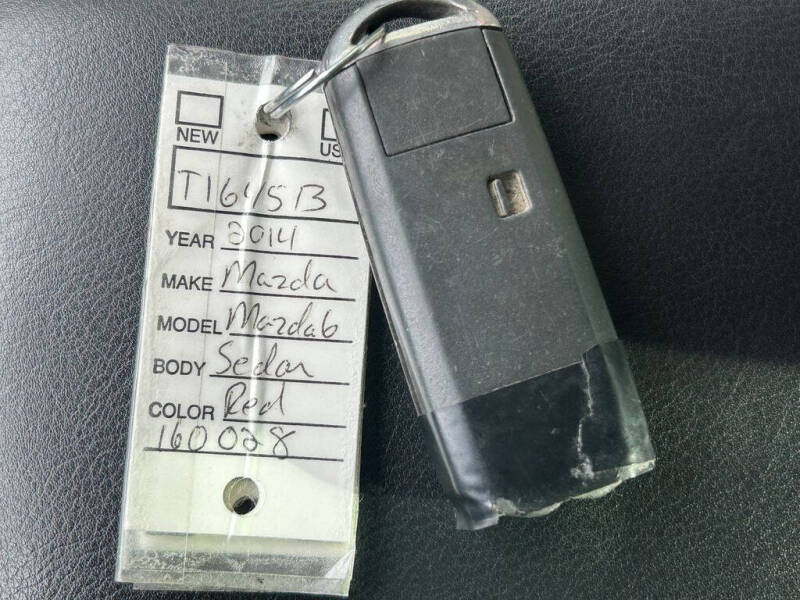 NEW
US
T1645B
YEAR 2014
MAKE Mazda
MODEL Mazda6
BODY Sedan
COLOR Red
160028